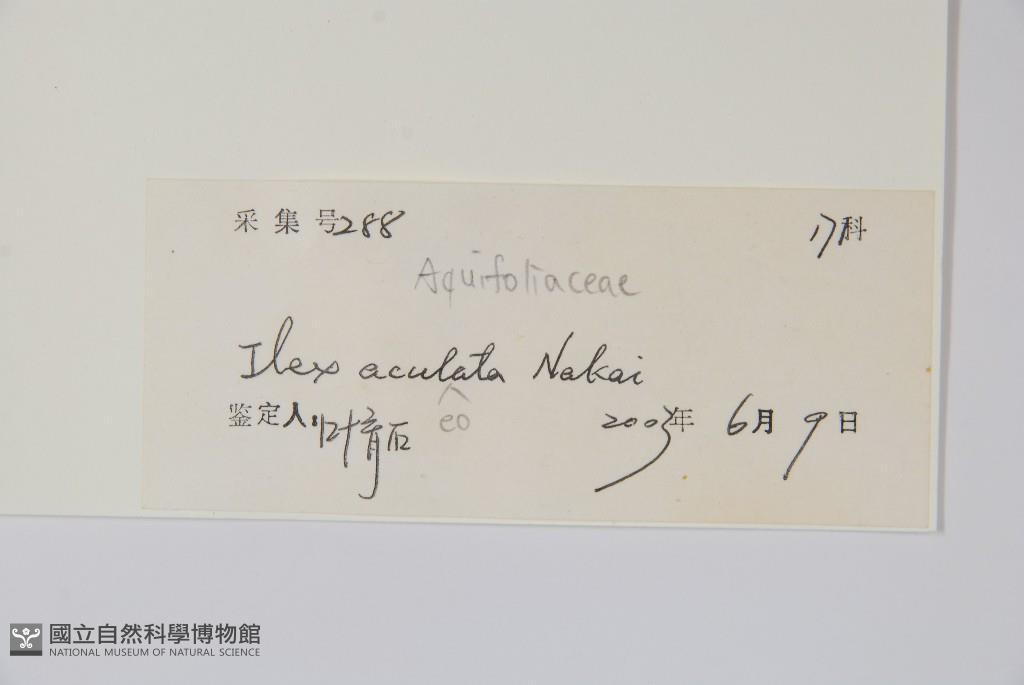 采集号288 科
Aquifoliaceae
Ilex aculata Nakai
eo
鉴定人: 叶育石 2003年 6月 9日
國立自然科學博物館
NATIONAL MUSEUM OF NATURAL SCIENCE